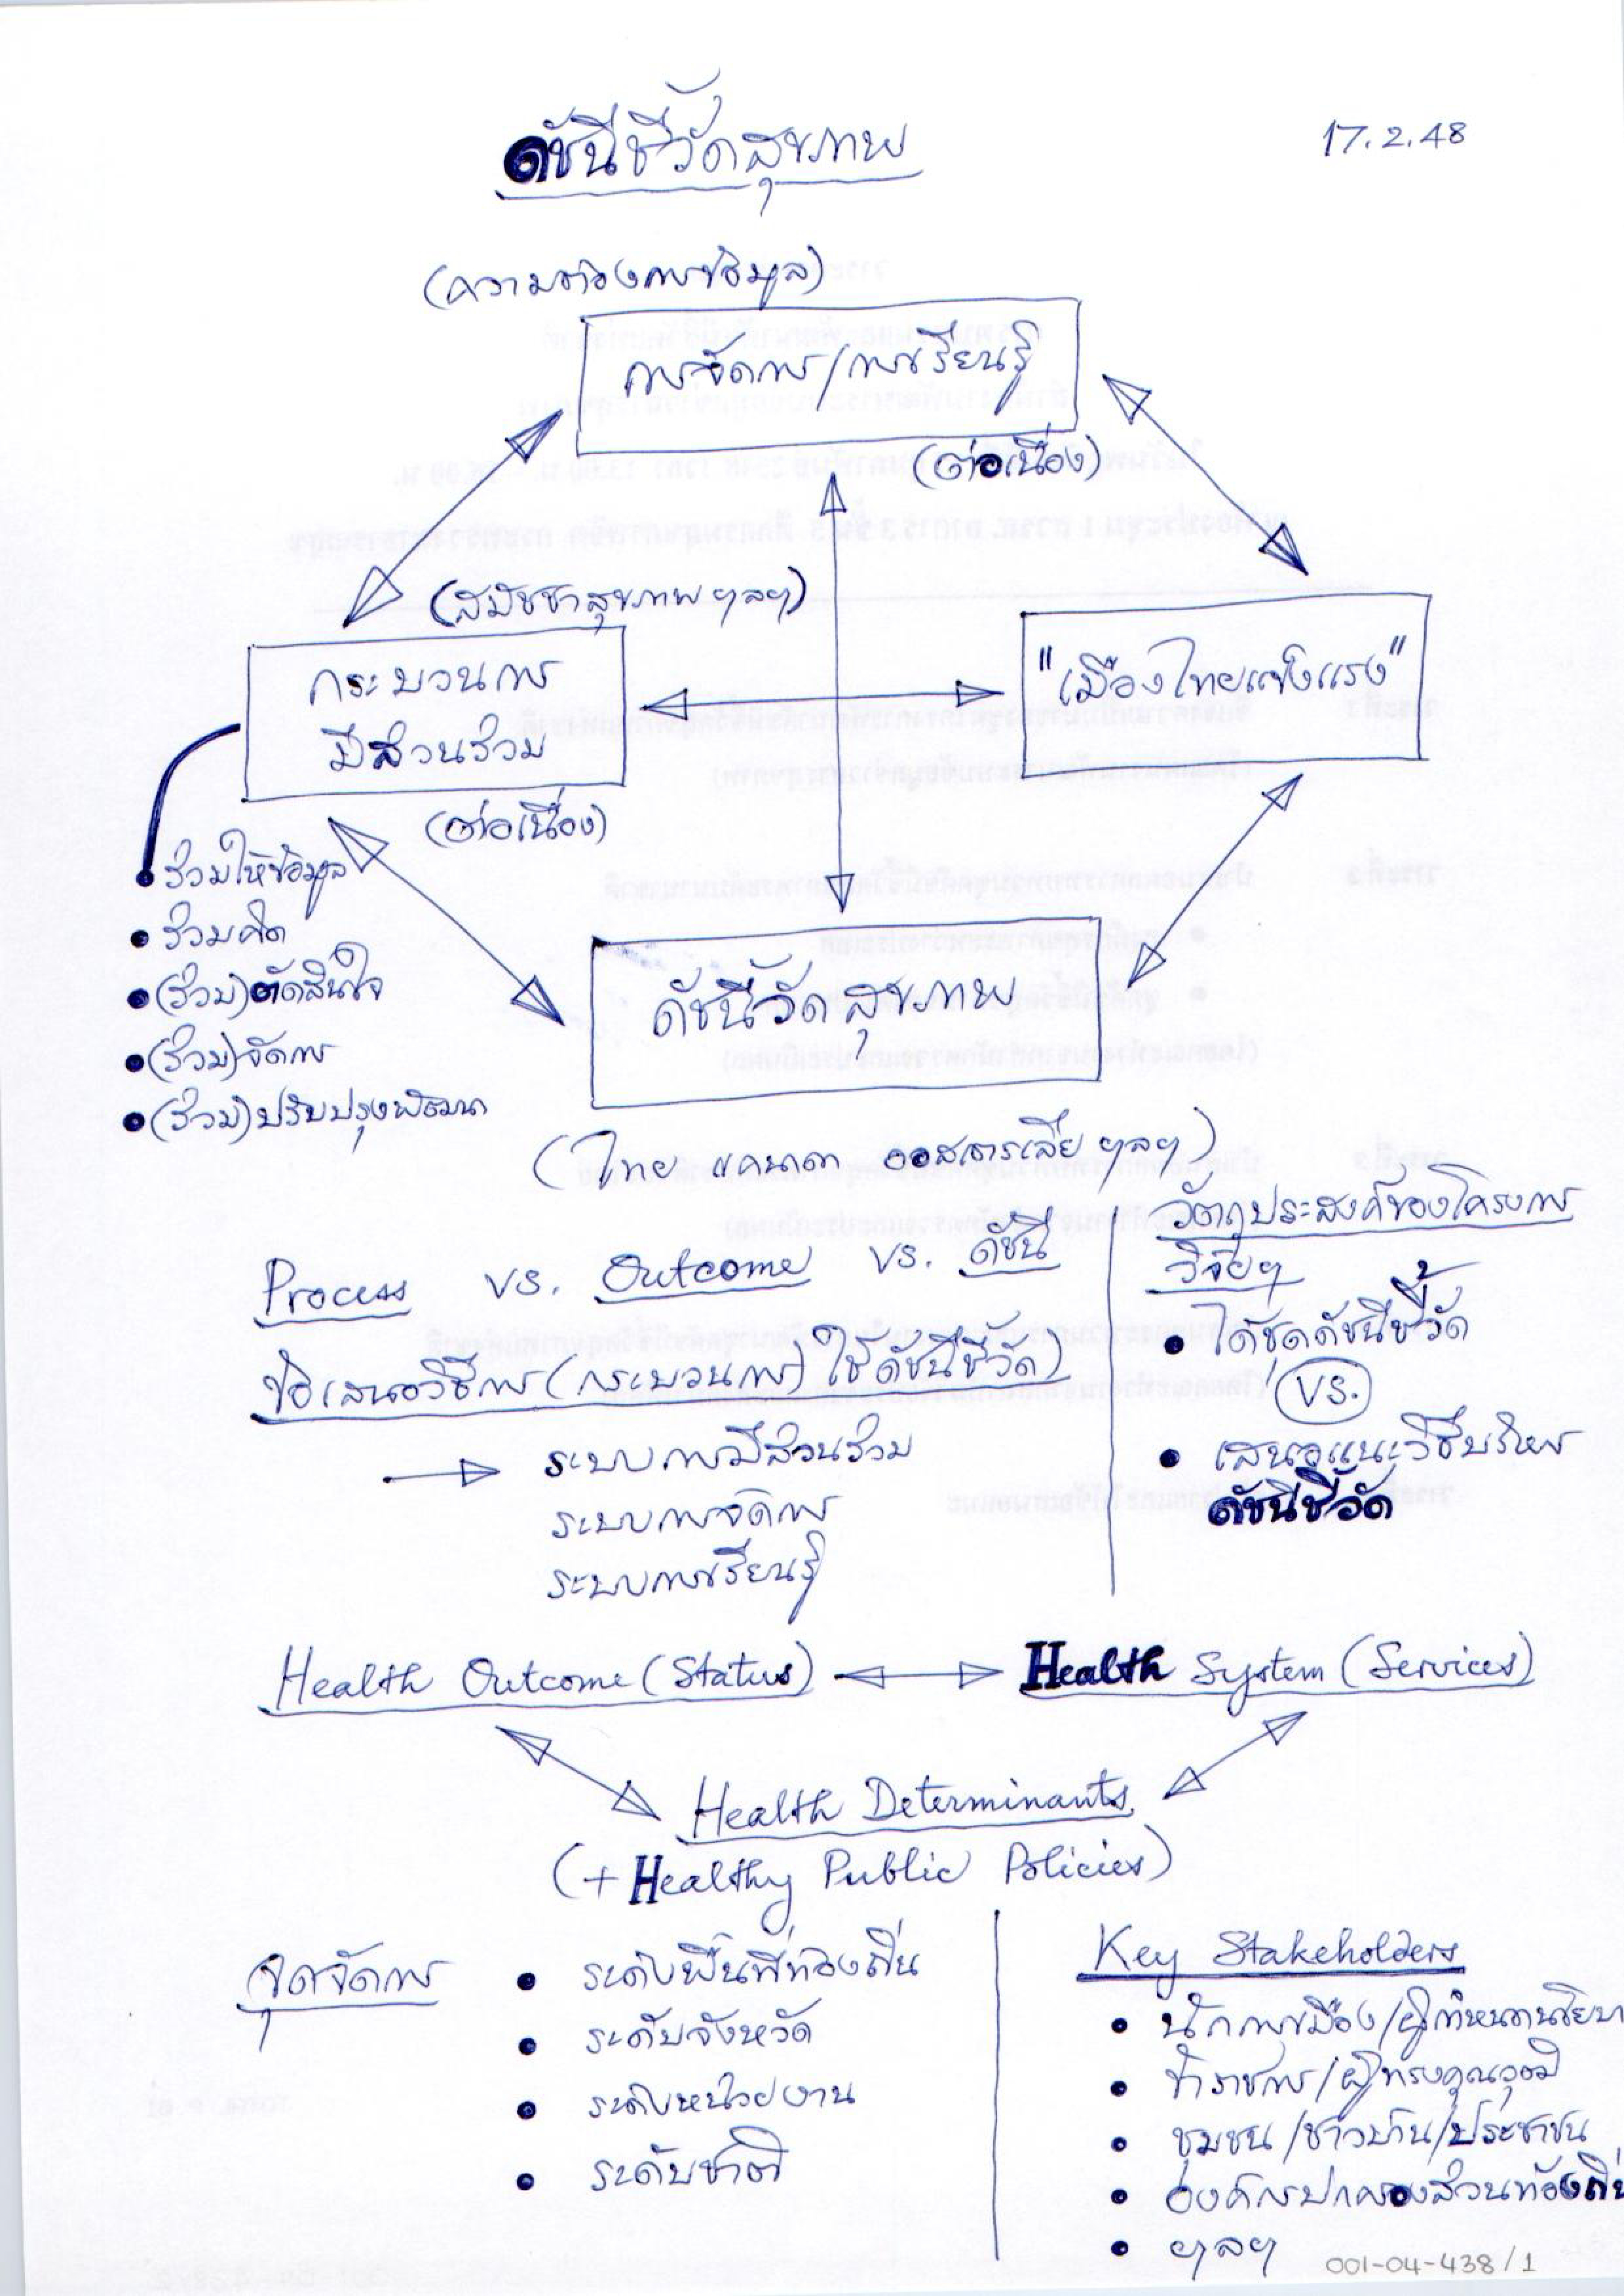 ดัชนีชี้วัดสุขภาพ
17.2.48
(ความต้องการข้อมูล)
การจัดการ/การเรียนรู้
(ต่อเนื่อง)
(สมัชชาสุขภาพ ฯลฯ)
กระบวนการ
มีส่วนร่วม
"เมืองไทยแข็งแรง"
(ต่อเนื่อง)
• ร่วมให้ข้อมูล
• ร่วมคิด
• (ร่วม) ตัดสินใจ
• (ร่วม) จัดการ
• (ร่วม) ปรับปรุงพัฒนา
ดัชนีวัดสุขภาพ
(ไทย แคนาดา ออสเตรเลีย ฯลฯ)
Process vs. Outcome vs. ดัชนี
ข้อเสนอวิธีการ (กระบวนการ) ใช้ดัชนีชี้วัด)
ระบบการมีส่วนร่วม
ระบบการจัดการ
ระบบการเรียนรู้
วัตถุประสงค์ของโครงการ
วิจัยฯ
• ได้ชุดดัชนีชี้วัด
vs.
• เสนอแนะวิธีบริหาร
ดัชนีชี้วัด
Health Outcome (Status)
Health System (Services)
Health Determinants
(+ Healthy Public Policies)
จุดจัดการ
• ระดับพื้นที่ท้องถิ่น
• ระดับจังหวัด
• ระดับหน่วยงาน
• ระดับชาติ
Key Stakeholders
• นักการเมือง/ผู้กำหนดนโยบา
• ข้าราชการ/ผู้ทรงคุณวุฒิ
• ชุมชน/ชาวบ้าน/ประชาชน
• องค์กรปกครองส่วนท้องถิ่
• ฯลฯ
001-04-438/1